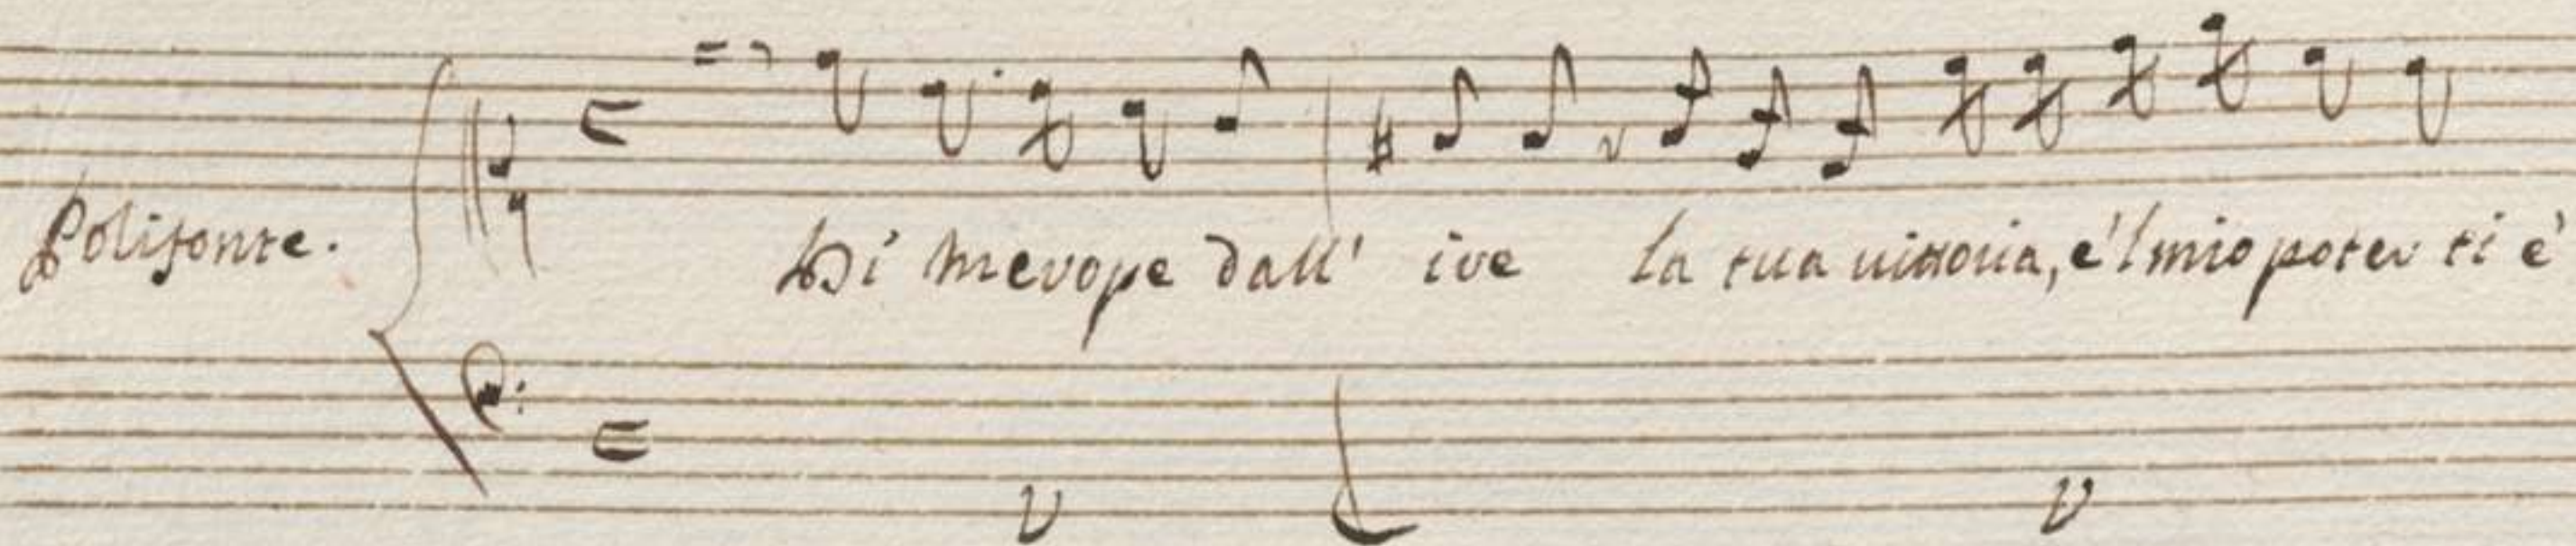 Polifonte.
Di Merope dall' ire la tua vittoria, e'l mio poter ti è